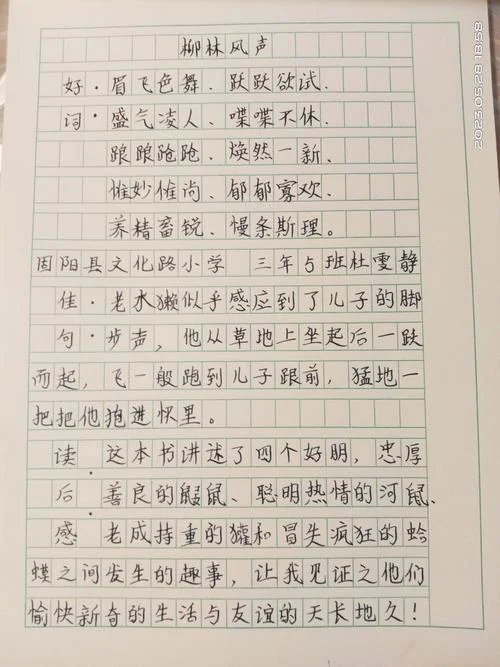 柳林风声
好·眉飞色舞、跃跃欲试、
词·盛气凌人、喋喋不休、
踉踉跄跄、焕然一新、
惟妙惟尚、郁郁寡欢、
养精畜锐、慢条斯理。
固阳县文化路小学 三年5班杜雯静
佳·老水獭似乎感应到了儿子的脚
句·步声，他从草地上坐起后一跃
而起，飞一般跑到儿子跟前，猛地一
把把他抱进怀里。
读·这本书讲述了四个好朋，忠厚
后·善良的鼹鼠、聪明热情的河鼠、
感·老成持重的獾和冒失疯狂的蛤
蟆之间发生的趣事，让我见证之他们
愉快新奇的生活与友谊的天长地久！
2025.05.28 18:58